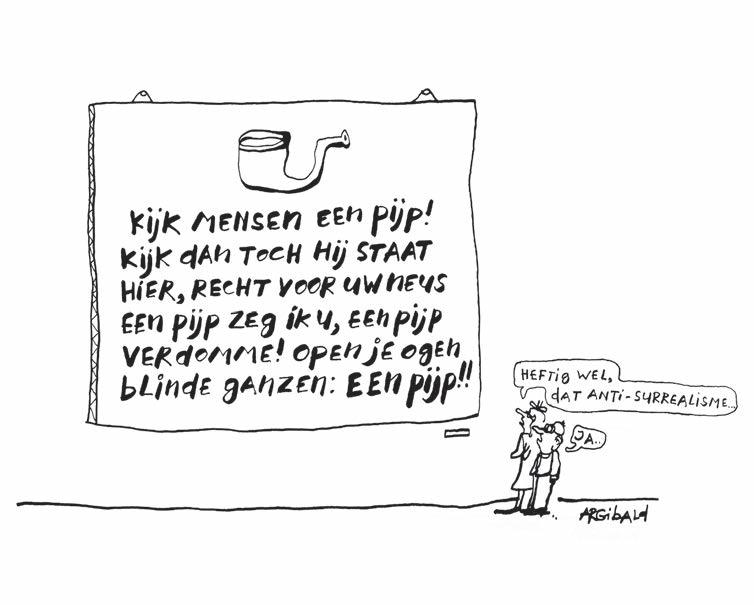 KIJK MENSEN EEN PIJP!
KIJK DAN TOCH HIJ STAAT
HIER, RECHT VOOR UW NEUS
EEN PIJP ZEG IK U, EEN PIJP
VERDOMME! OPEN JE OGEN
BLINDE GANZEN: EEN PIJP!!
HEFTIG WEL,
DAT ANTI-SURREALISME...
JA..
ARGIBALD